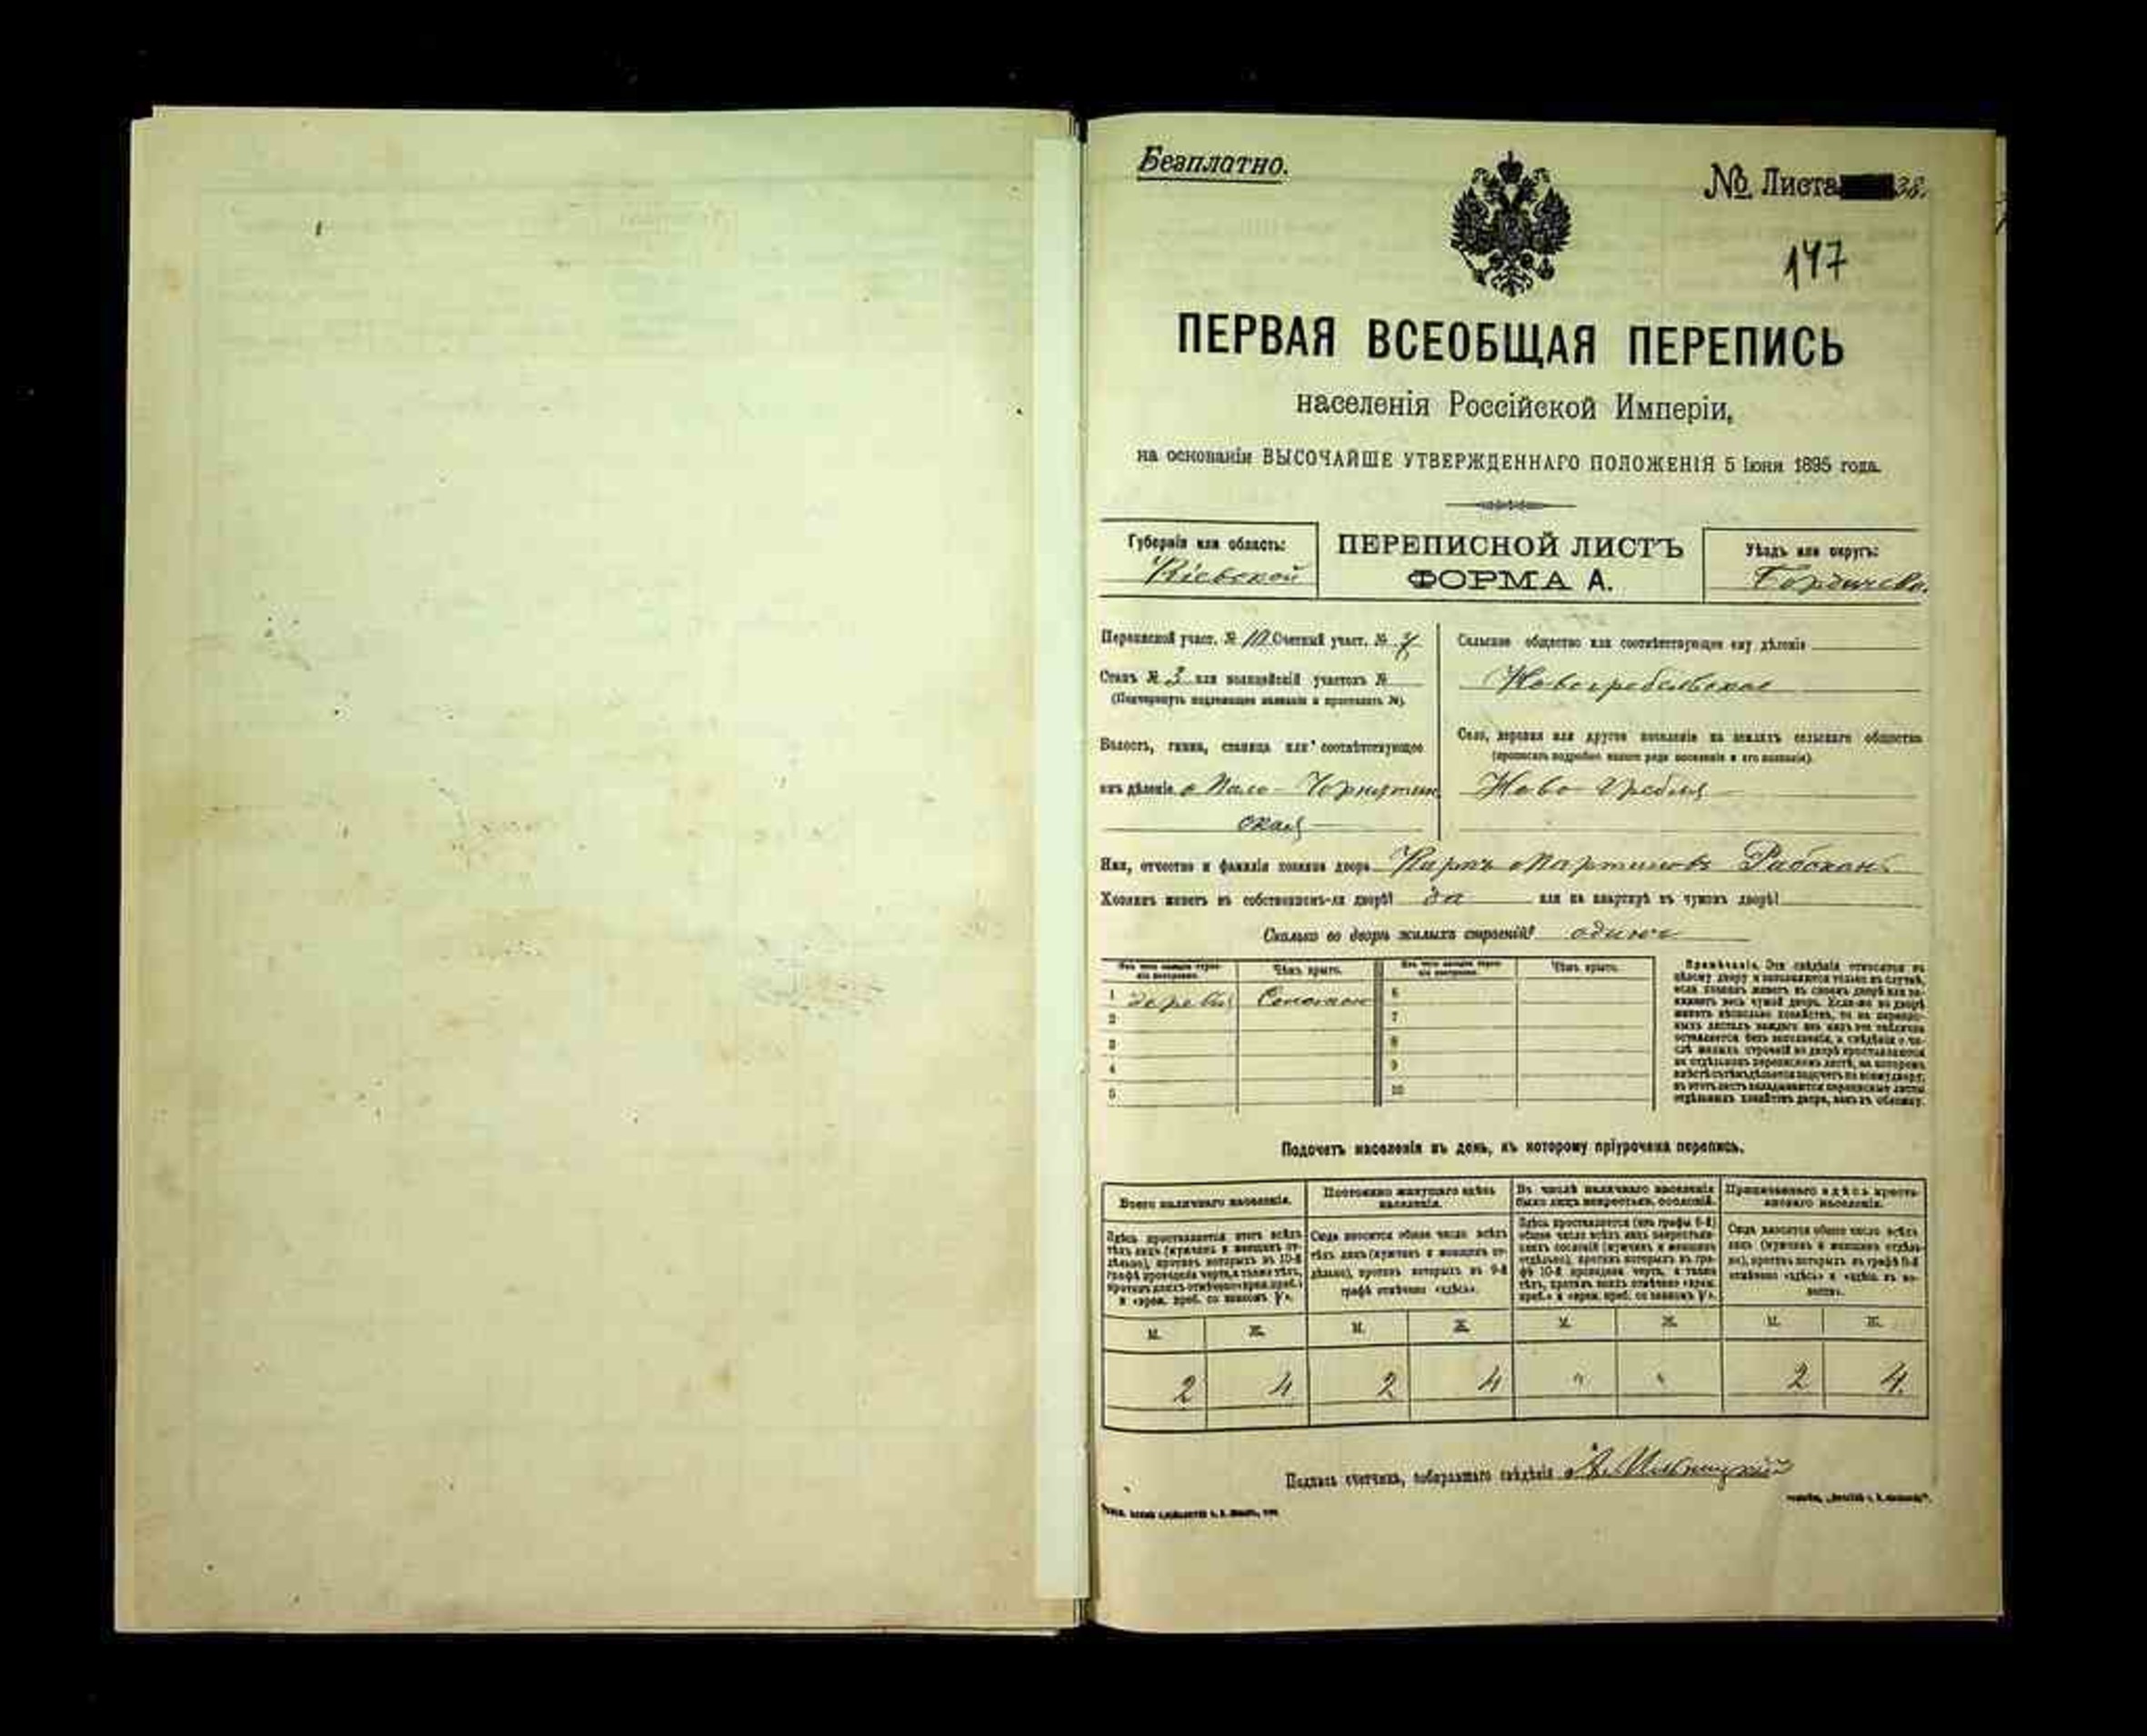 Безплатно.
№ Листа 38.
147
ПЕРВАЯ ВСЕОБЩАЯ ПЕРЕПИСЬ
населенія Россійской Имперіи,
на основаніи ВЫСОЧАЙШЕ УТВЕРЖДЕННАГО ПОЛОЖЕНІЯ 5 Іюня 1895 года.
Губернія или область:
Кіевской
ПЕРЕПИСНОЙ ЛИСТЪ
ФОРМА А.
Уѣздъ или округъ:
Бердичев.
Переписной участ. № 10 Счетный участ. № 7
Станъ № 3 или полицейскій участокъ №
(Подчеркнуть надлежащее названіе и проставить №).
Волость, гмина, станица или соотвѣтствующее
имъ дѣленіе Мало-Чернятин
ская
Сельское общество или соотвѣтствующее ему дѣленіе
Новогребельское
Село, деревня или другое поселеніе на земляхъ сельскаго общества
(прописать подробно какого рода поселеніе и его названіе).
Ново-Гребля
Имя, отчество и фамилія хозяина двора Карпъ Мартиновъ
Хозяинъ живетъ въ собственномъ-ли дворѣ? да или на квартирѣ въ чужомъ дворѣ?
Сколько во дворѣ жилыхъ строеній? одинъ
Изъ чего каждое строеніе построено. Чѣмъ крыто. Изъ чего каждое строеніе построено. Чѣмъ крыто.
1 дерева Соломою 6
2 7
3 8
4 9
5 10
Примѣчаніе. Эти свѣдѣнія относятся къ
цѣлому двору и заполняются только въ случаѣ,
если хозяинъ живетъ въ своемъ дворѣ или за-
нимаетъ весь чужой дворъ. Если-же во дворѣ
имѣетъ нѣсколько хозяйствъ, то на переписныхъ
листахъ каждаго изъ нихъ эта табличка
оставляется безъ заполненія, а свѣдѣнія о чи-
слѣ жилыхъ строеній во дворѣ проставляются
на отдѣльномъ переписномъ листѣ, на которомъ
вмѣстѣ съ тѣмъ дѣлается подсчетъ по всему двору;
въ этотъ листъ вкладываются переписные листы
отдѣльныхъ хозяйствъ двора, какъ въ обложку.
Подсчетъ населенія въ день, къ которому пріурочена перепись.
Всего наличнаго населенія.
Здѣсь проставляется итогъ всѣхъ
тѣхъ лицъ (мужчинъ и женщинъ от-
дѣльно), противъ которыхъ въ 10-й
графѣ проведена черта, а также тѣхъ,
противъ коихъ отмѣчено «врем. преб.»
и «врем. преб. со знакомъ γ».
Постоянно живущаго здѣсь
населенія.
Сюда вносится общее число всѣхъ
тѣхъ лицъ (мужчинъ и женщинъ от-
дѣльно), противъ которыхъ въ 9-й
графѣ отмѣчено «здѣсь».
Въ числѣ наличнаго населенія
было лицъ некрестьян. сословій.
Здѣсь проставляется (изъ графы 6-й)
общее число всѣхъ лицъ некрестьян-
скихъ сословій (мужчинъ и женщинъ
отдѣльно), противъ которыхъ въ гра-
фѣ 10-й проведена черта, а также
тѣхъ, противъ коихъ отмѣчено «врем.
преб.» и «врем. преб. со знакомъ γ».
Приписаннаго здѣсь кресть-
янскаго населенія.
Сюда вносится общее число всѣхъ
лицъ (мужчинъ и женщинъ отдѣль-
но), противъ которыхъ въ графѣ 8-й
отмѣчено «здѣсь» и «здѣсь въ во-
лости».
М. Ж. М. Ж. М. Ж. М. Ж.
2 4 2 4 " " 2 4.
Подпись счетчика, собиравшаго свѣдѣнія